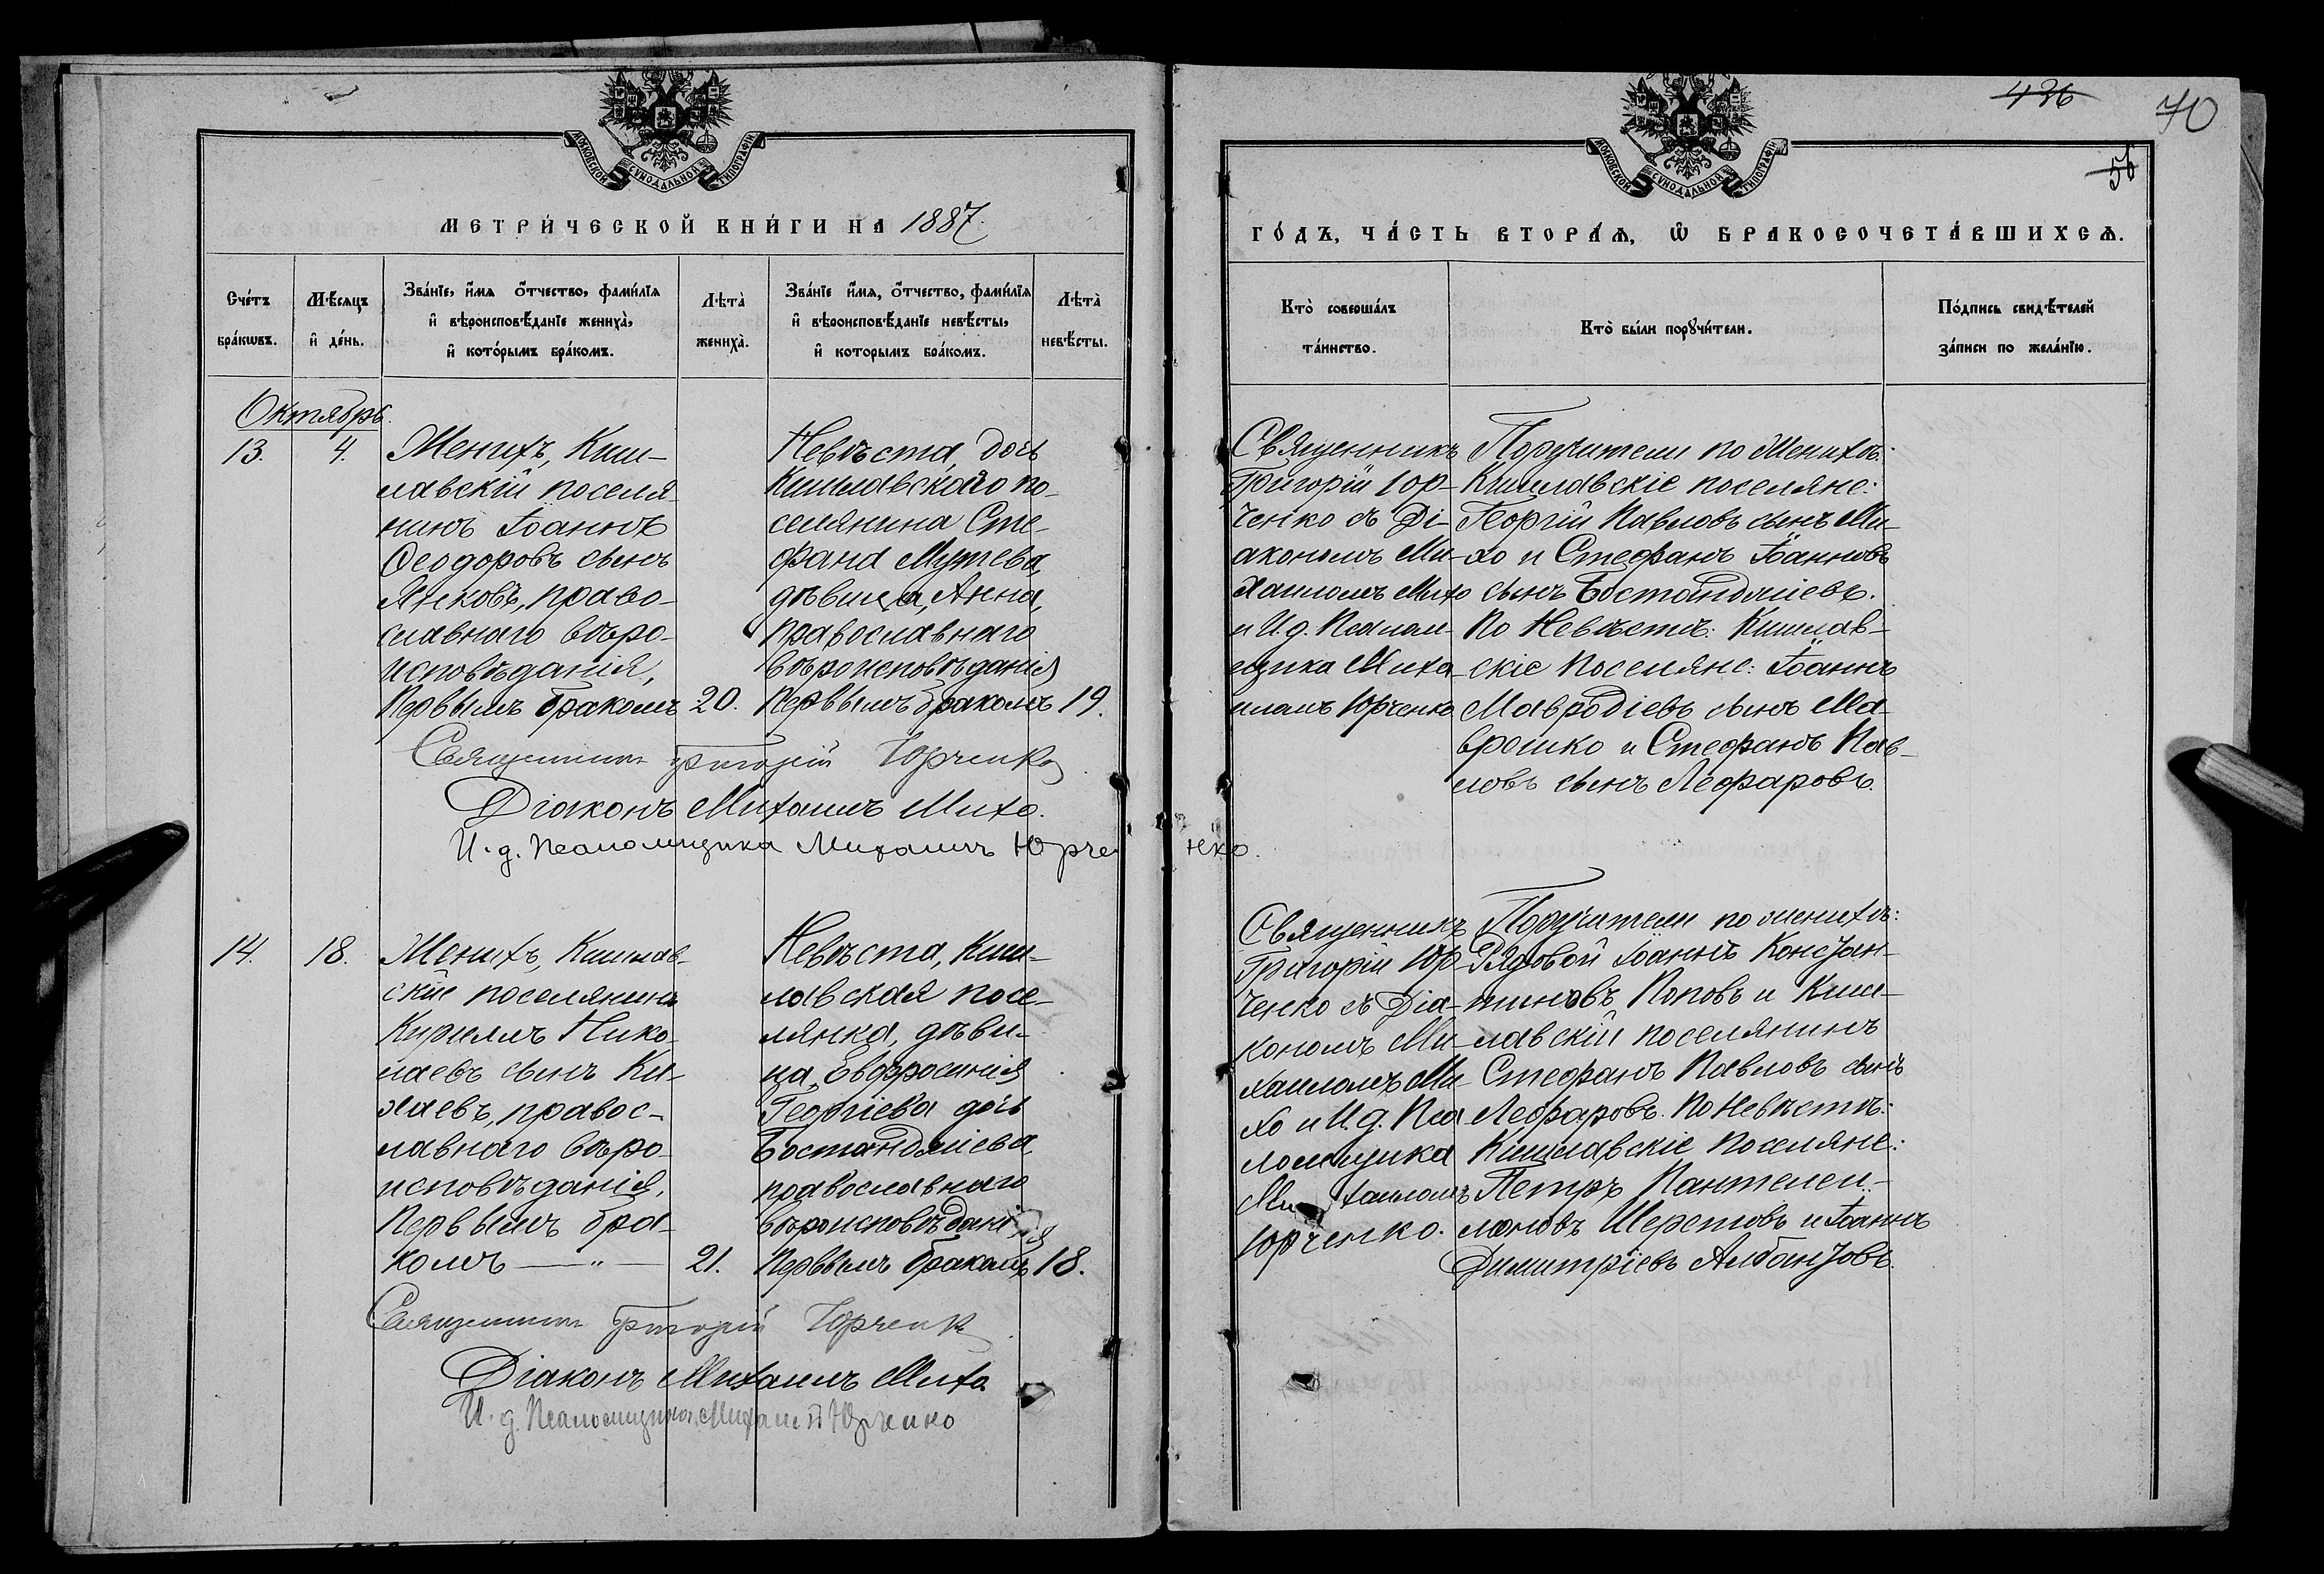 МОСКОВСКОЙ СѴНОДАЛЬНОЙ ТИПОГРАФІИ
МЕТРИ́ЧЕСКОЙ КНИ́ГИ НА 1887.
Сче́тъ бра́кѡвъ.
Мѣ́сяцъ и҆ де́нь.
Зва́нїе, и҆́мя ѻ҆́тчество, фами́лїя
и҆ вѣроисповѣ́данїе жениха̀,
и҆ кото́рымъ бра́комъ.
Лѣта̀ жениха̀.
Зва́нїе и҆́мя, ѻ҆́тчество, фами́лїя
и҆ вѣроисповѣ́данїе невѣ́сты,
и҆ которымъ бра́комъ.
Лѣта̀ невѣ́сты.
Октябрь.
13. 4.
Женихъ, Киш-
лавскій поселя-
нинъ Іоаннъ
Ѳеодоровъ сынъ
Янковъ, право-
славнаго вѣро-
исповѣданія,
первымъ бракомъ 20.
Невѣста, дочь
Кишлавскаго по-
селянина Сте-
фана Мутева,
дѣвица, Анна,
православнаго
вѣроисповѣданія
первымъ бракомъ 19.
Священникъ Григорій Юрченко
Діаконъ Михаилъ Михо.
И. д. Псаломщика Михаилъ Юрченко.
14. 18.
Женихъ, Кишлав-
скій поселянинъ
Кириллъ Нико-
лаевъ сынъ Ки-
хаевъ, правос-
лавнаго вѣро-
исповѣданія,
первымъ бра-
комъ — „ — 21.
Невѣста, Киш-
лавская посе-
лянка, дѣви-
ца, Евфросинія
Георгіева дочь
Бостанджіева
православнаго
вѣроисповѣданія
первымъ бракомъ 18.
Священникъ Григорій Юрченко
Діаконъ Михаилъ Михо
И. д. Псаломщика Михаилъ Юрченко
436
70
56
МОСКОВСКОЙ СѴНОДАЛЬНОЙ ТИПОГРАФІИ
ГО́ДЪ, ЧА́СТЬ ВТОРА́Ѧ, Ѽ БРАКОСОЧЕТА́ВШИХСѦ.
Кто̀ соверша́лъ
та́инство.
Кто̀ бы́ли порꙋчи́тели.
По́дпись свидѣ́телей
за́писи по жела́нїю.
Священникъ
Григорій Юр-
ченко съ Ді-
акономъ Ми-
хаиломъ Михо
и И. д. Псалом-
щика Миха-
иломъ Юрченко
Поручители по женихѣ:
Кишлавскіе поселяне:
Георгій Павловъ сынъ Ми-
хо и Стефанъ Іоанновъ
сынъ Бостанджіевъ.
По Невѣстѣ: Кишлав-
скіе поселяне: Іоаннъ
Мавродіевъ сынъ Ма-
врешко и Стефанъ Пав-
ловъ сынъ Лефаровъ.
Священникъ
Григорій Юр-
ченко съ Діа-
кономъ Ми-
хаиломъ Ми-
хо и И. д. Пса
ломщика
Михаиломъ
Юрченко.
Поручители по женихѣ:
Рядовой Іоаннъ Констан-
тиновъ Поповъ и Киш-
лавскій поселянинъ
Стефанъ Павловъ сынъ
Лефаровъ. По Невѣстѣ:
Кишлавскіе поселяне:
Петръ Пантелеи-
моновъ Шеретовъ и Іоаннъ
Димитріевъ Албанзовъ.